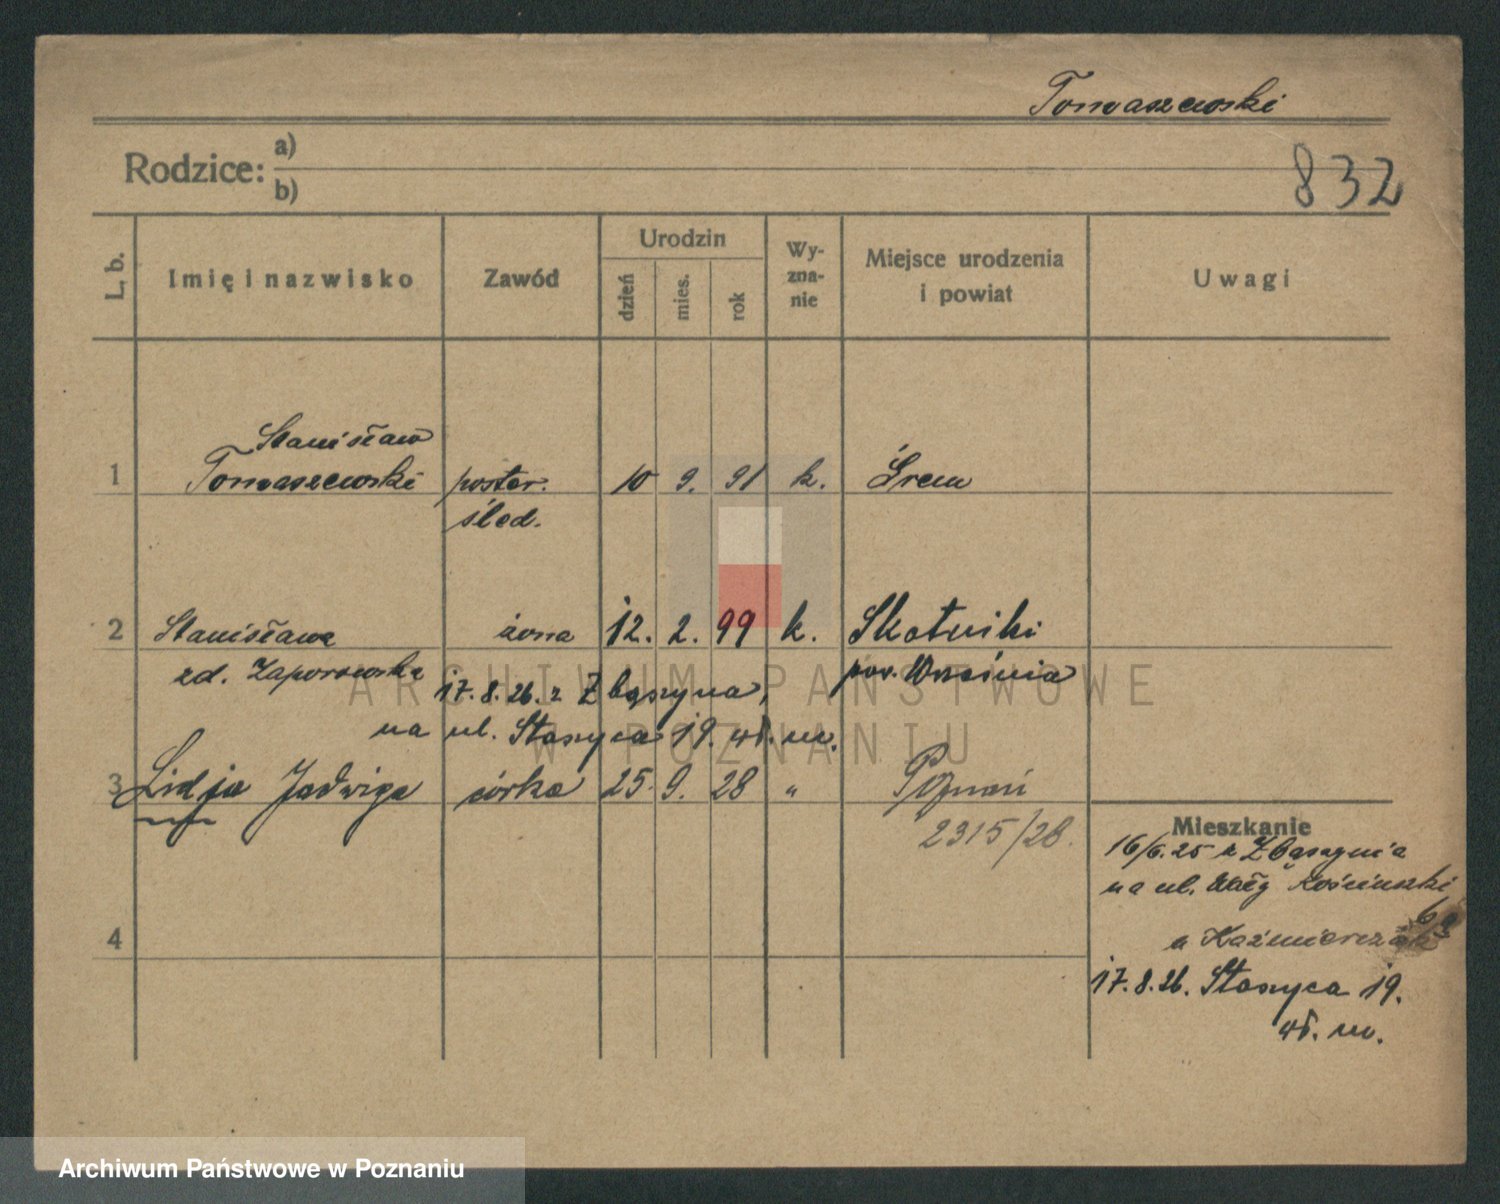 Tomaszewski
Rodzice: a)
b)
832
L. b.
Imię i nazwisko
Zawód
Urodzin
dzień
mies.
rok
Wy-
zna-
nie
Miejsce urodzenia
i powiat
Uwagi
Stanisław
1 Tomaszewski poster. 10 9. 91 k. Śrem
śled.
2 Stanisława żona 12. 2. 99 k. Skotniki
zd. Zaporowska pow. Września
17.8.26. z Zbąszyna,
na ul. Staszyca 19. wł. m.
3 Lidja Jadwiga córka 25. 9. 28 " Poznań
2315/28.
Mieszkanie
16/6.25 z Zbąszynia
na ul. Kościuszki
6a
u Kaźmierczak
4
17.8.26. Staszyca 19.
wł. m.
ARCHIWUM PAŃSTWOWE
W POZNANIU
Archiwum Państwowe w Poznaniu